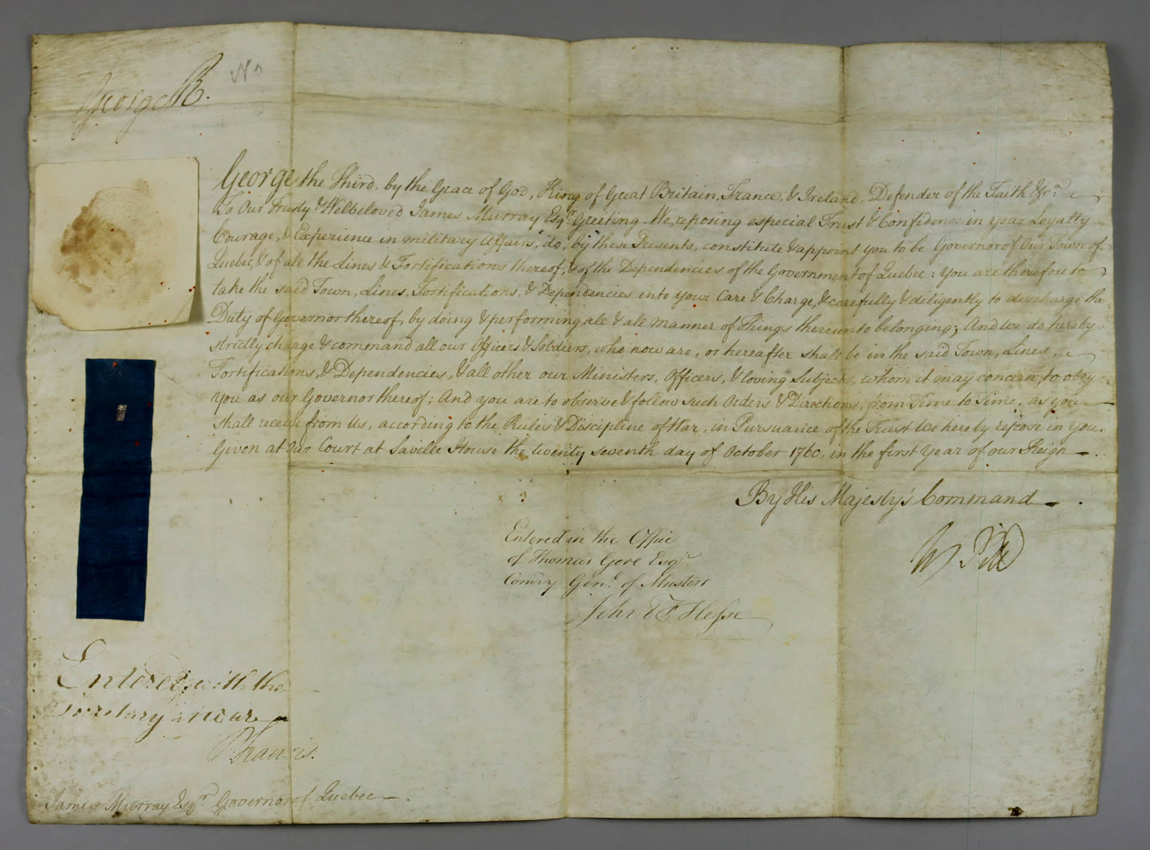 George R.
George the Third, by the Grace of God, King of Great Britain, France, & Ireland, Defender of the Faith &c.ª
To Our Trusty & Welbeloved James Murray Esqʳ. Greeting. We, reposing especial Trust & Confidence in your Loyalty
Courage, & Experience in military Affairs, do, by these Presents, constitute & appoint you to be Governor of Our Town of
Quebec, & of all the Lines & Fortifications thereof, & of the Dependencies of the Government of Quebec: You are therefore to
take the said Town, Lines, Fortifications, & Dependencies into your Care & Charge, & carefully & diligently to discharge the
Duty of Governor thereof, by doing & performing all & all manner of Things thereunto belonging; And we do hereby
strictly charge & command all our Officers & Soldiers, who now are, or hereafter shall be in the said Town, Lines,
Fortifications, & Dependencies, & all other our Ministers, Officers, & loving Subjects, whom it may concern to obey
You as our Governor thereof; And you are to observe & follow such Orders & Directions, from Time to Time, as you
shall receive from Us, according to the Rules & Discipline of War, in Pursuance of the Trust We hereby repose in you.
Given at Our Court at Saville House the twenty seventh day of October 1760, in the first Year of our Reign
By His Majesty's Command
W Pitt
Entered in the Office
of Thomas Gore Esqʳ
Comry Genˡ. of Musters
John Hesse
Entered with the
Secretary at War
Francis.
James Murray Esqʳ Governor of Quebec